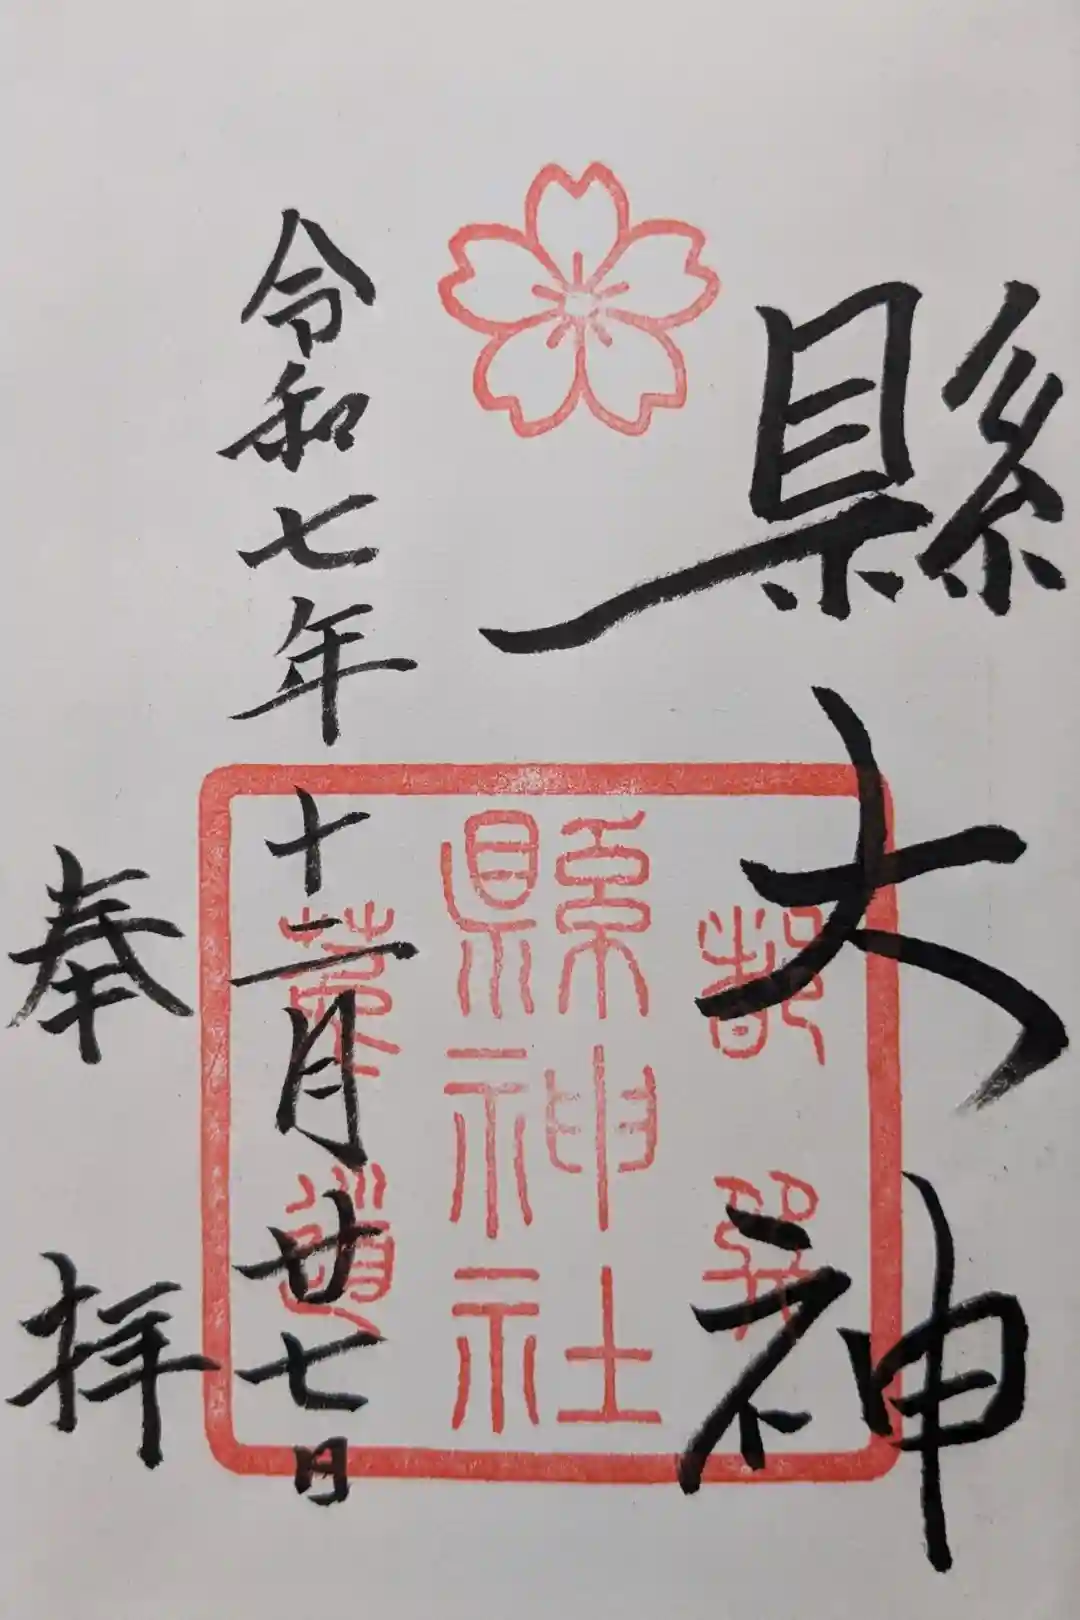 縣大神
都巽
縣神社
菟道
令和七年十二月廿七日
奉拝